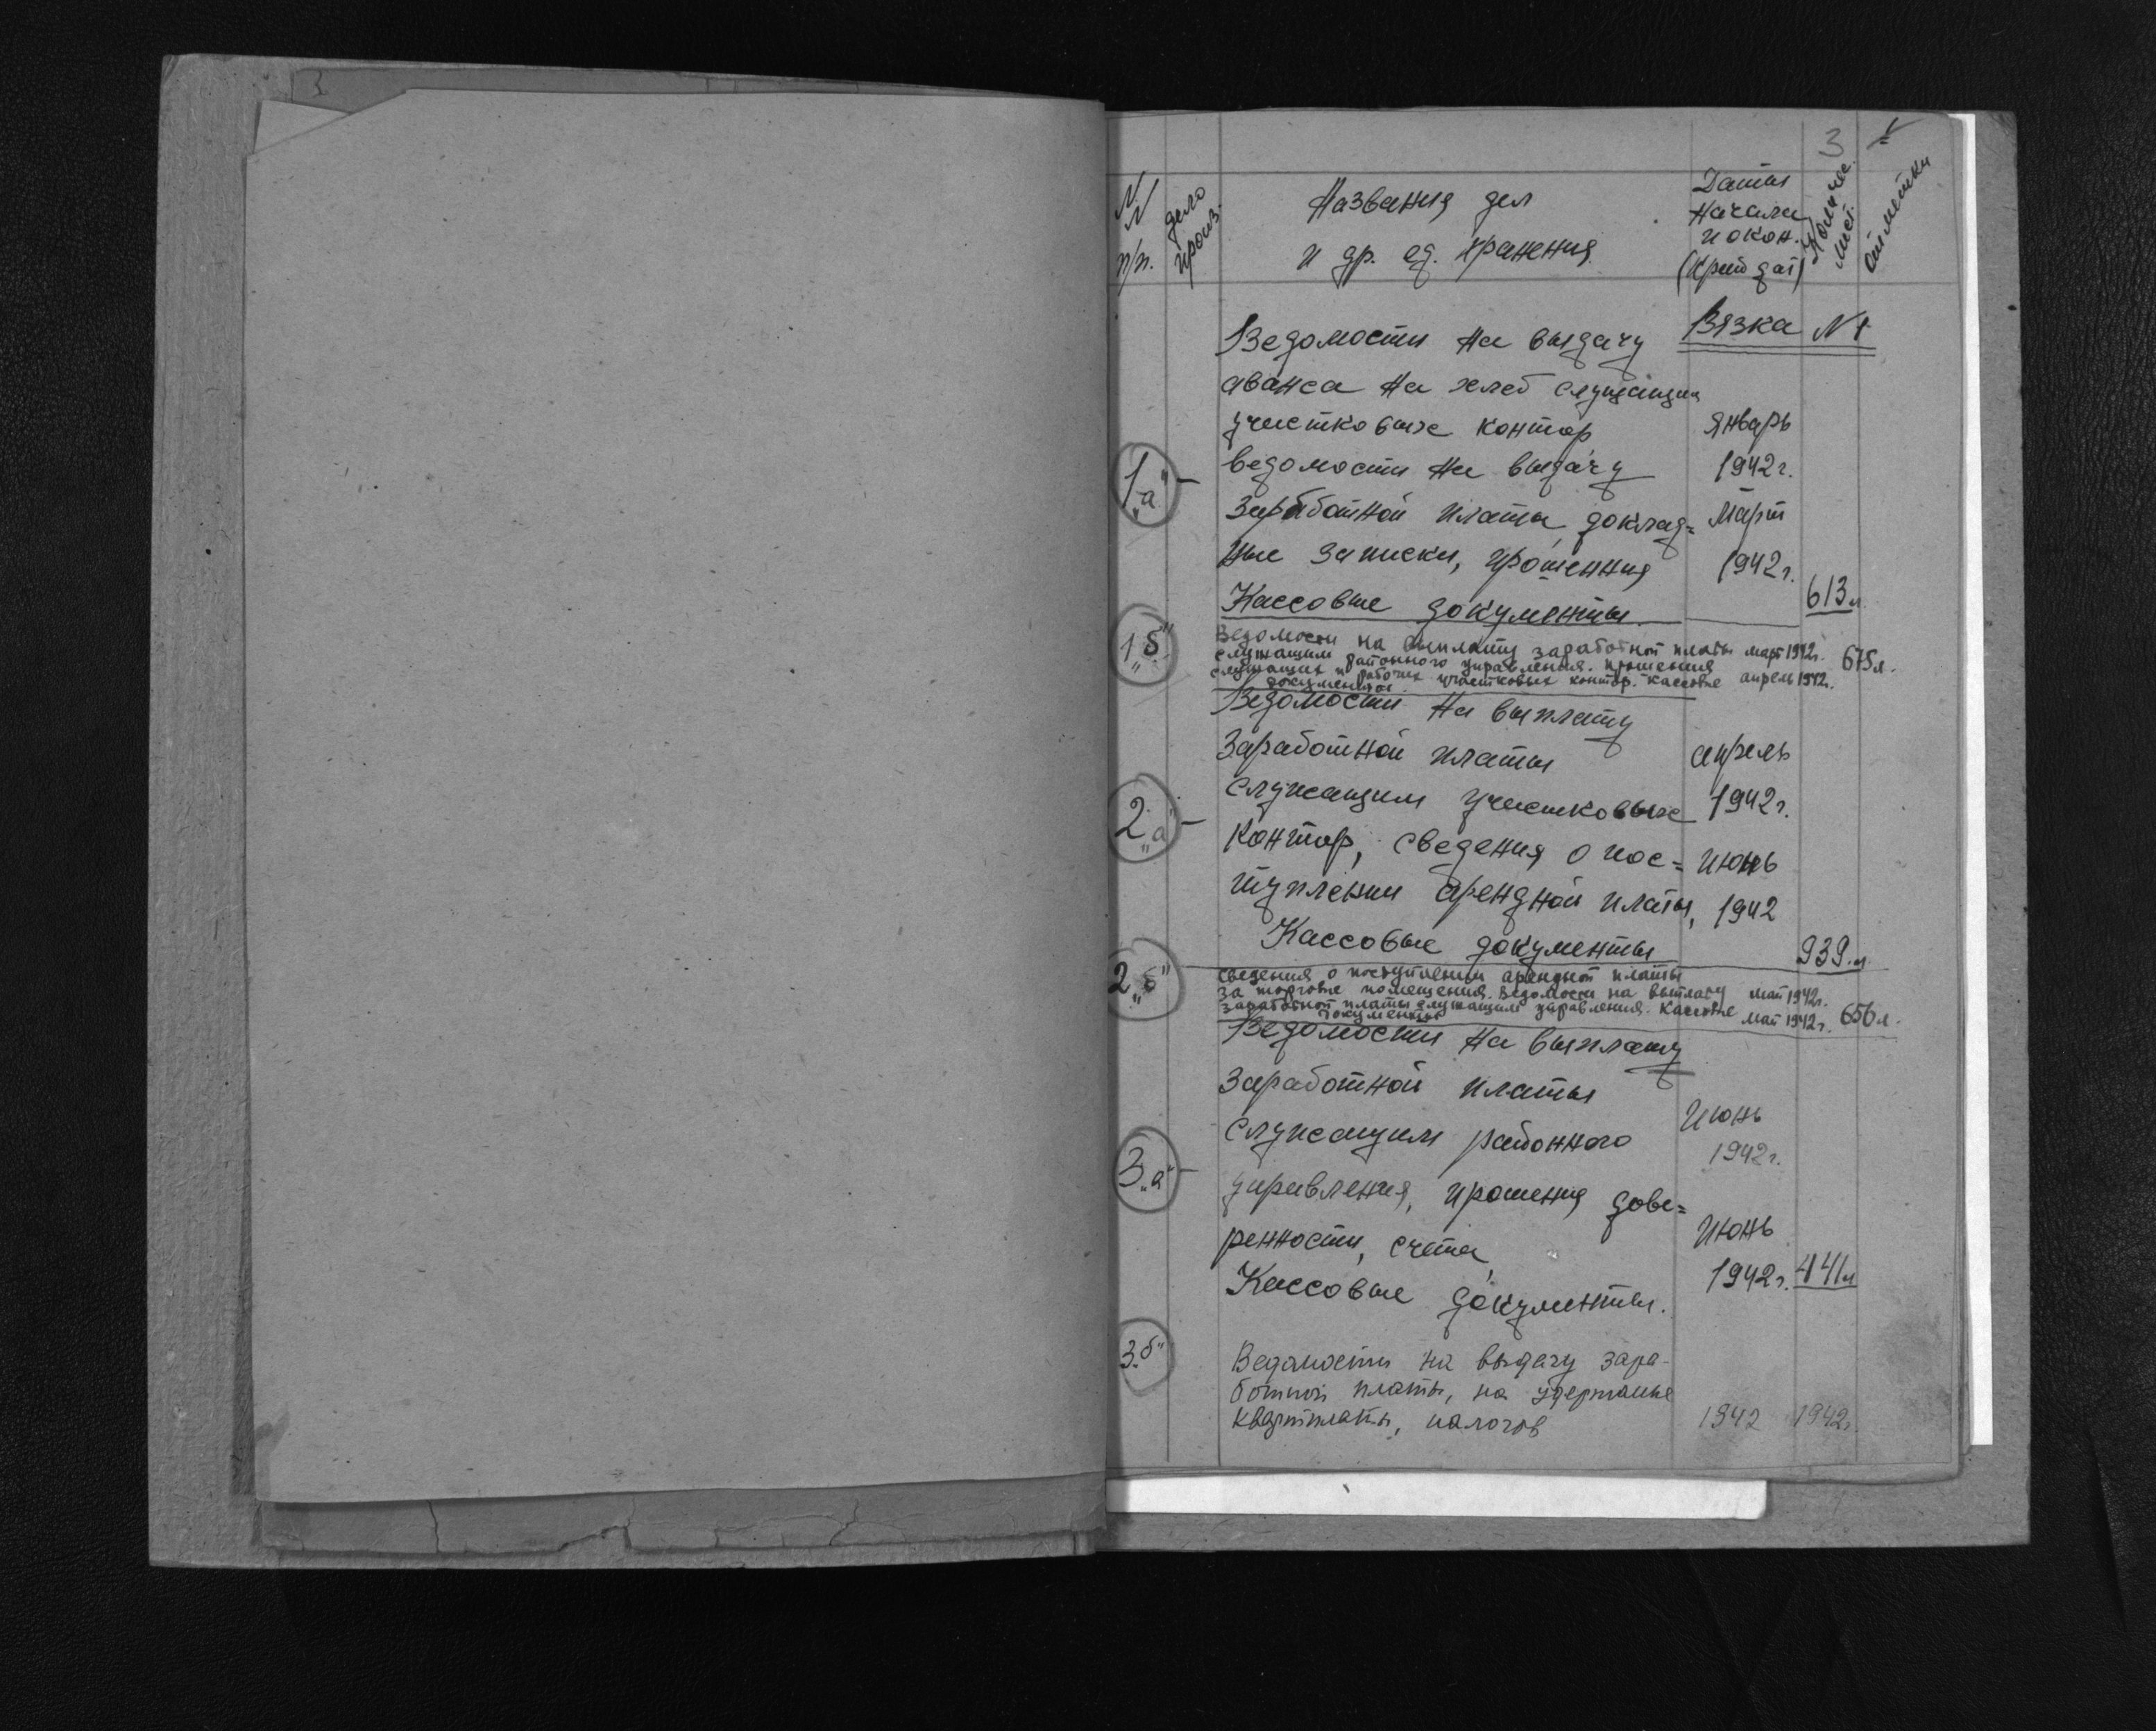 3
N
N
п/п.
дело
произ.
Названия дел
и др. ед. хранения
Даты
начала
и окон.
(Крайн дат)
Колич.
лист.
отметки
Вязка N 1
Ведомости на выдачу
аванса на хлеб служащим
участковых контор
январь
1„а“
ведомости на выдачу
1942 г.
заработной платы, доклад=
март
ные записки, прошения
1942 г.
Кассовые документы.
613 л
1„б“
Ведомости на выплату заработной платы март 1942г.
служащим районного управления. прошения
675 л.
служащих и рабочих участковых контор. Кассовые апрель 1942г.
документы.
Ведомости на выплату
заработной платы
апрель
2„а“
служащим участковых
1942 г.
контор, сведения о пос=
июнь
туплении арендной платы,
1942
Кассовые документы
939 л
2„б“
Сведения о поступлении арендной платы
за торговые помещения. Ведомости на выплату май 1942г.
заработной платы служащим управления. Кассовые май 1942г. 656 л.
документы
Ведомости на выплату
заработной платы
служащим районного
Июнь
1942 г.
3„а“
управления, прошения дове=
ренности, счета,
Июнь
Кассовые документы.
1942 г. 441 л
3„б“
Ведомости на выдачу зара-
ботной платы, на удержание
квартплаты, налогов
1942 1942г.